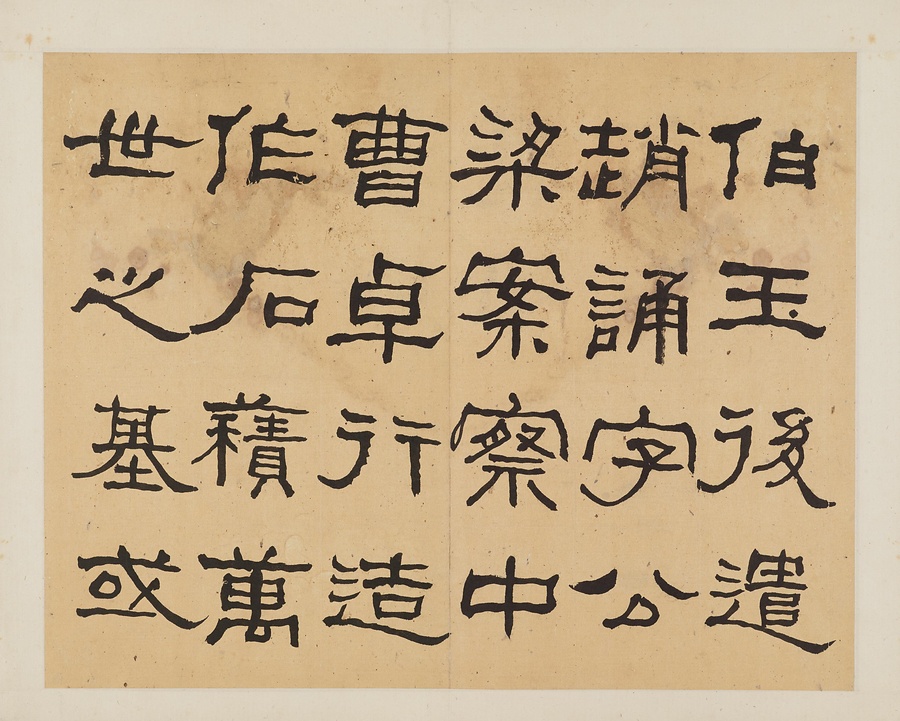 伯玉後遣
趙誦字公
梁案察中
曹卓行造
作石積萬
世之基或